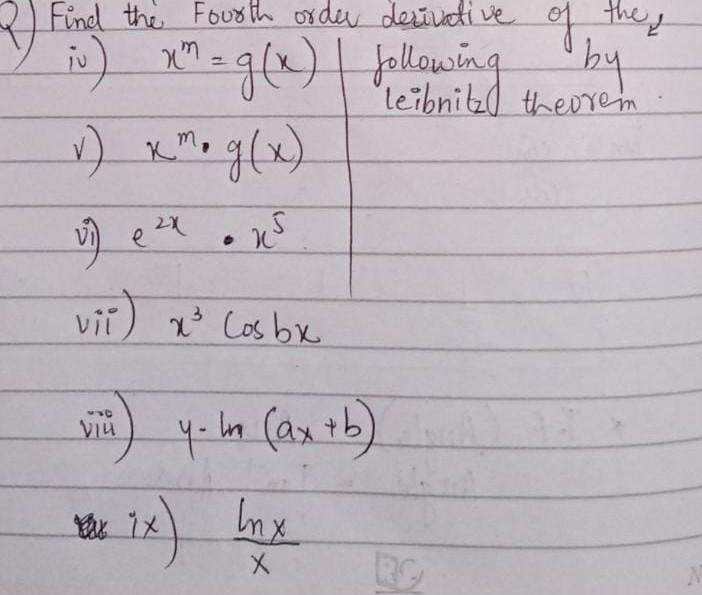 Q) Find the Fourth order derivative of the
iv) xᵐ = g(x) | following by
leibnitz theorem.
v) xᵐ · g(x)
vi) e²ˣ · x⁵
vii) x³ Cos bx
viii) y - ln (ax + b)
ix) ln x / x